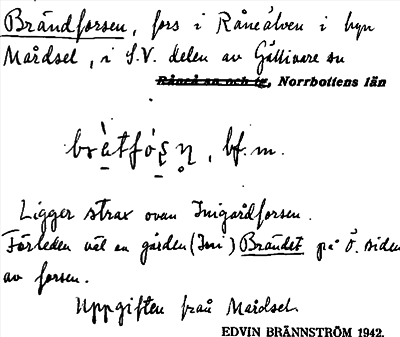 Brändforsen, fors i Råneälven i byn
Mårdsel, i S.V. delen av Gällivare sn
Råneå sn och tg, Norrbottens län
brätfósn, bf. m.
Ligger strax ovan Inigårdforsen.
Förleden väl en gården (Ini) Brändet på Ö. siden
av forsen.
Uppgiften från Mårdsel.
EDVIN BRÄNNSTRÖM 1942.